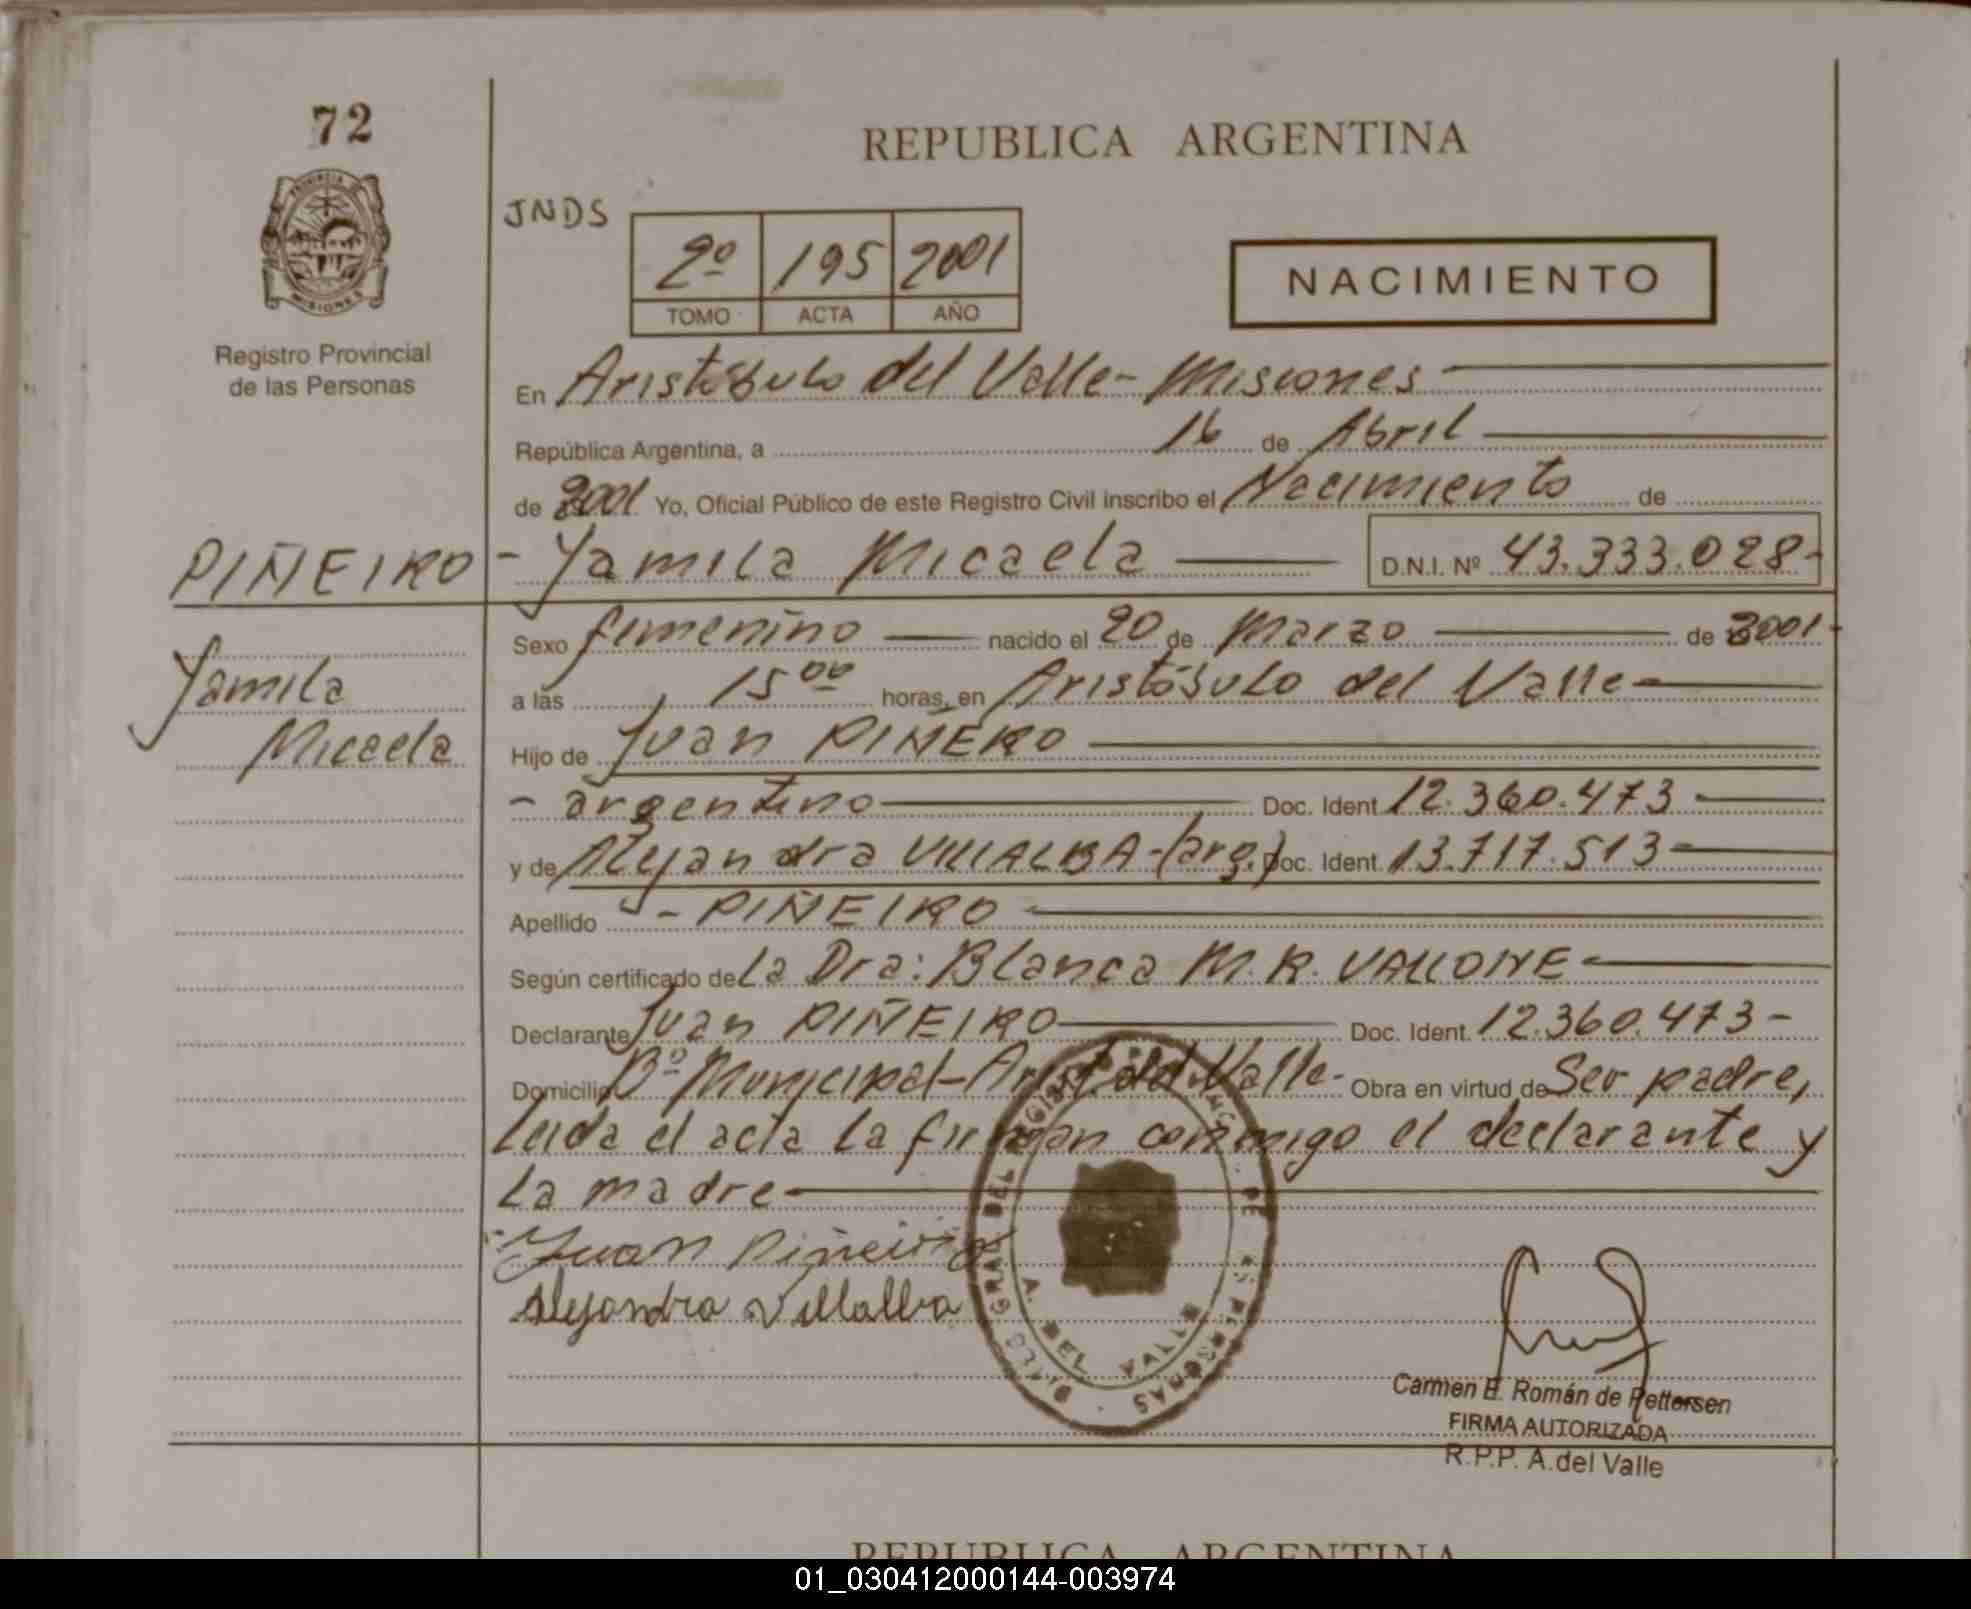 72
REPUBLICA ARGENTINA
PROVINCIA DE
MISIONES
Registro Provincial
de las Personas
JNDS
2º 195 2001
TOMO ACTA AÑO
NACIMIENTO
En Aristóbulo del Valle - Misiones
República Argentina, a 16 de Abril
de 2001 Yo, Oficial Público de este Registro Civil inscribo el Nacimiento de
PIÑEIRO - Yamila Micaela D.N.I. Nº 43.333.028-
Yamila
Micaela
Sexo femenino nacido el 20 de Marzo de 2001-
a las 15 00 horas, en Aristóbulo del Valle-
Hijo de Juan PIÑEIRO
- argentino Doc. Ident. 12.360.473
y de Alejandra VILLALBA-(arg.) Doc. Ident. 13.717.513
Apellido - PIÑEIRO
Según certificado de La Dra: Blanca M. R. VALLONE-
Declarante Juan PIÑEIRO Doc. Ident. 12.360.473-
Domicilio Bº Municipal-Arist. del Valle- Obra en virtud de Ser padre,
Leida el acta La firman conmigo el declarante y
La madre-
Juan Piñeiro
Alejandra Villalba
DEL VALLE
Carmen E. Román de Pettersen
FIRMA AUTORIZADA
R.P.P. A.del Valle
REPUBLICA ARGENTINA
01_030412000144-003974